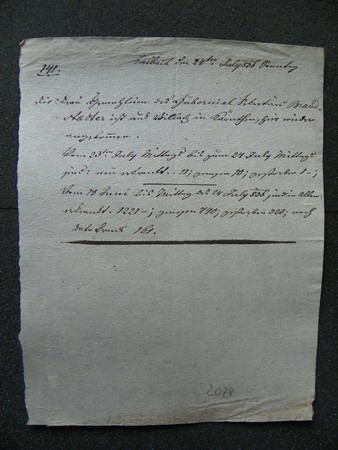 141.
Laibach den 24ten July 836 Sonntag
Die Frau Gemahlinn des Gubernial Sekretärs
ist aus Villach in Kärnthen, hier wieder
angekommen.
Vom 23ten July Mittags bis zum 24 July Mittags
sind: neu erkrankt. 11; genesen 10; gestorben 1-;
Vom 18 Juni bis Mittag des 24 July 836 sind in Allem
erkrankt. 1221-; genesen 740; gestorben 320; noch
dato krank 161.
2078